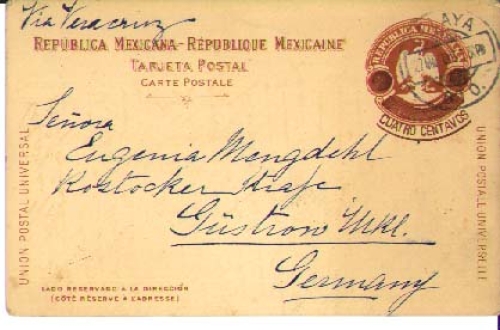 Via Veracruz
REPUBLICA MEXICANA-RÉPUBLIQUE MEXICAINE
TARJETA POSTAL
CARTE POSTALE
REPUBLICA MEXICANA
CUATRO CENTAVOS
AYA
Señora
Eugenia Mengdehl
Rostocker Straße
Güstrow Mkl.
Germany
UNION POSTAL UNIVERSAL
UNION POSTALE UNIVERSELLE
LADO RESERVADO A LA DIRECCIÓN
(CÔTÉ RÉSERVÉ A L'ADRESSE)